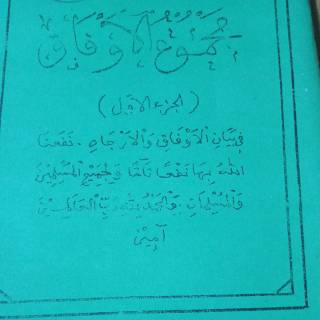 مجموع الأوفاق
(الجزء الأوّل)
فِي بَيَانِ الْأَوْفَاقِ وَالْأَرْجَاهِ. نَفَعَنَا
اللّٰهُ بِهَا نَفْعًا تَآمًّا وَلِجَمِيْعِ الْمُسْلِمِيْنَ
وَالْمُسْلِمَاتِ. وَالْحَمْدُ لِلّٰهِ رَبِّ الْعَالَمِيْنَ
آمِيْن